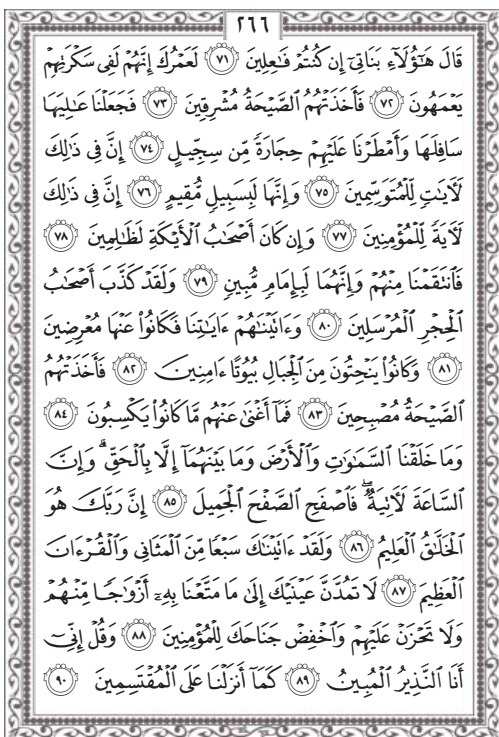 ٢٦٦
قَالَ هَٰٓؤُلَآءِ بَنَاتِىٓ إِن كُنتُمْ فَٰعِلِينَ ٧١ لَعَمْرُكَ إِنَّهُمْ لَفِى سَكْرَتِهِمْ
يَعْمَهُونَ ٧٢ فَأَخَذَتْهُمُ ٱلصَّيْحَةُ مُشْرِقِينَ ٧٣ فَجَعَلْنَا عَٰلِيَهَا
سَافِلَهَا وَأَمْطَرْنَا عَلَيْهِمْ حِجَارَةً مِّن سِجِّيلٍ ٧٤ إِنَّ فِى ذَٰلِكَ
لَءَايَٰتٍ لِّلْمُتَوَسِّمِينَ ٧٥ وَإِنَّهَا لَبِسَبِيلٍ مُّقِيمٍ ٧٦ إِنَّ فِى ذَٰلِكَ
لَءَايَةً لِّلْمُؤْمِنِينَ ٧٧ وَإِن كَانَ أَصْحَٰبُ ٱلْأَيْكَةِ لَظَٰلِمِينَ ٧٨
فَٱنتَقَمْنَا مِنْهُمْ وَإِنَّهُمَا لَبِإِمَامٍ مُّبِينٍ ٧٩ وَلَقَدْ كَذَّبَ أَصْحَٰبُ
ٱلْحِجْرِ ٱلْمُرْسَلِينَ ٨٠ وَءَاتَيْنَٰهُمْ ءَايَٰتِنَا فَكَانُوا۟ عَنْهَا مُعْرِضِينَ
٨١ وَكَانُوا۟ يَنْحِتُونَ مِنَ ٱلْجِبَالِ بُيُوتًا ءَامِنِينَ ٨٢ فَأَخَذَتْهُمُ
ٱلصَّيْحَةُ مُصْبِحِينَ ٨٣ فَمَآ أَغْنَىٰ عَنْهُم مَّا كَانُوا۟ يَكْسِبُونَ ٨٤
وَمَا خَلَقْنَا ٱلسَّمَٰوَٰتِ وَٱلْأَرْضَ وَمَا بَيْنَهُمَآ إِلَّا بِٱلْحَقِّ ۗ وَإِنَّ
ٱلسَّاعَةَ لَءَاتِيَةٌ ۖ فَٱصْفَحِ ٱلصَّفْحَ ٱلْجَمِيلَ ٨٥ إِنَّ رَبَّكَ هُوَ
ٱلْخَلَّٰقُ ٱلْعَلِيمُ ٨٦ وَلَقَدْ ءَاتَيْنَٰكَ سَبْعًا مِّنَ ٱلْمَثَانِى وَٱلْقُرْءَانَ
ٱلْعَظِيمَ ٨٧ لَا تَمُدَّنَّ عَيْنَيْكَ إِلَىٰ مَا مَتَّعْنَا بِهِۦٓ أَزْوَٰجًا مِّنْهُمْ
وَلَا تَحْزَنْ عَلَيْهِمْ وَٱخْفِضْ جَنَاحَكَ لِلْمُؤْمِنِينَ ٨٨ وَقُلْ إِنِّىٓ
أَنَا ٱلنَّذِيرُ ٱلْمُبِينُ ٨٩ كَمَآ أَنزَلْنَا عَلَى ٱلْمُقْتَسِمِينَ ٩٠